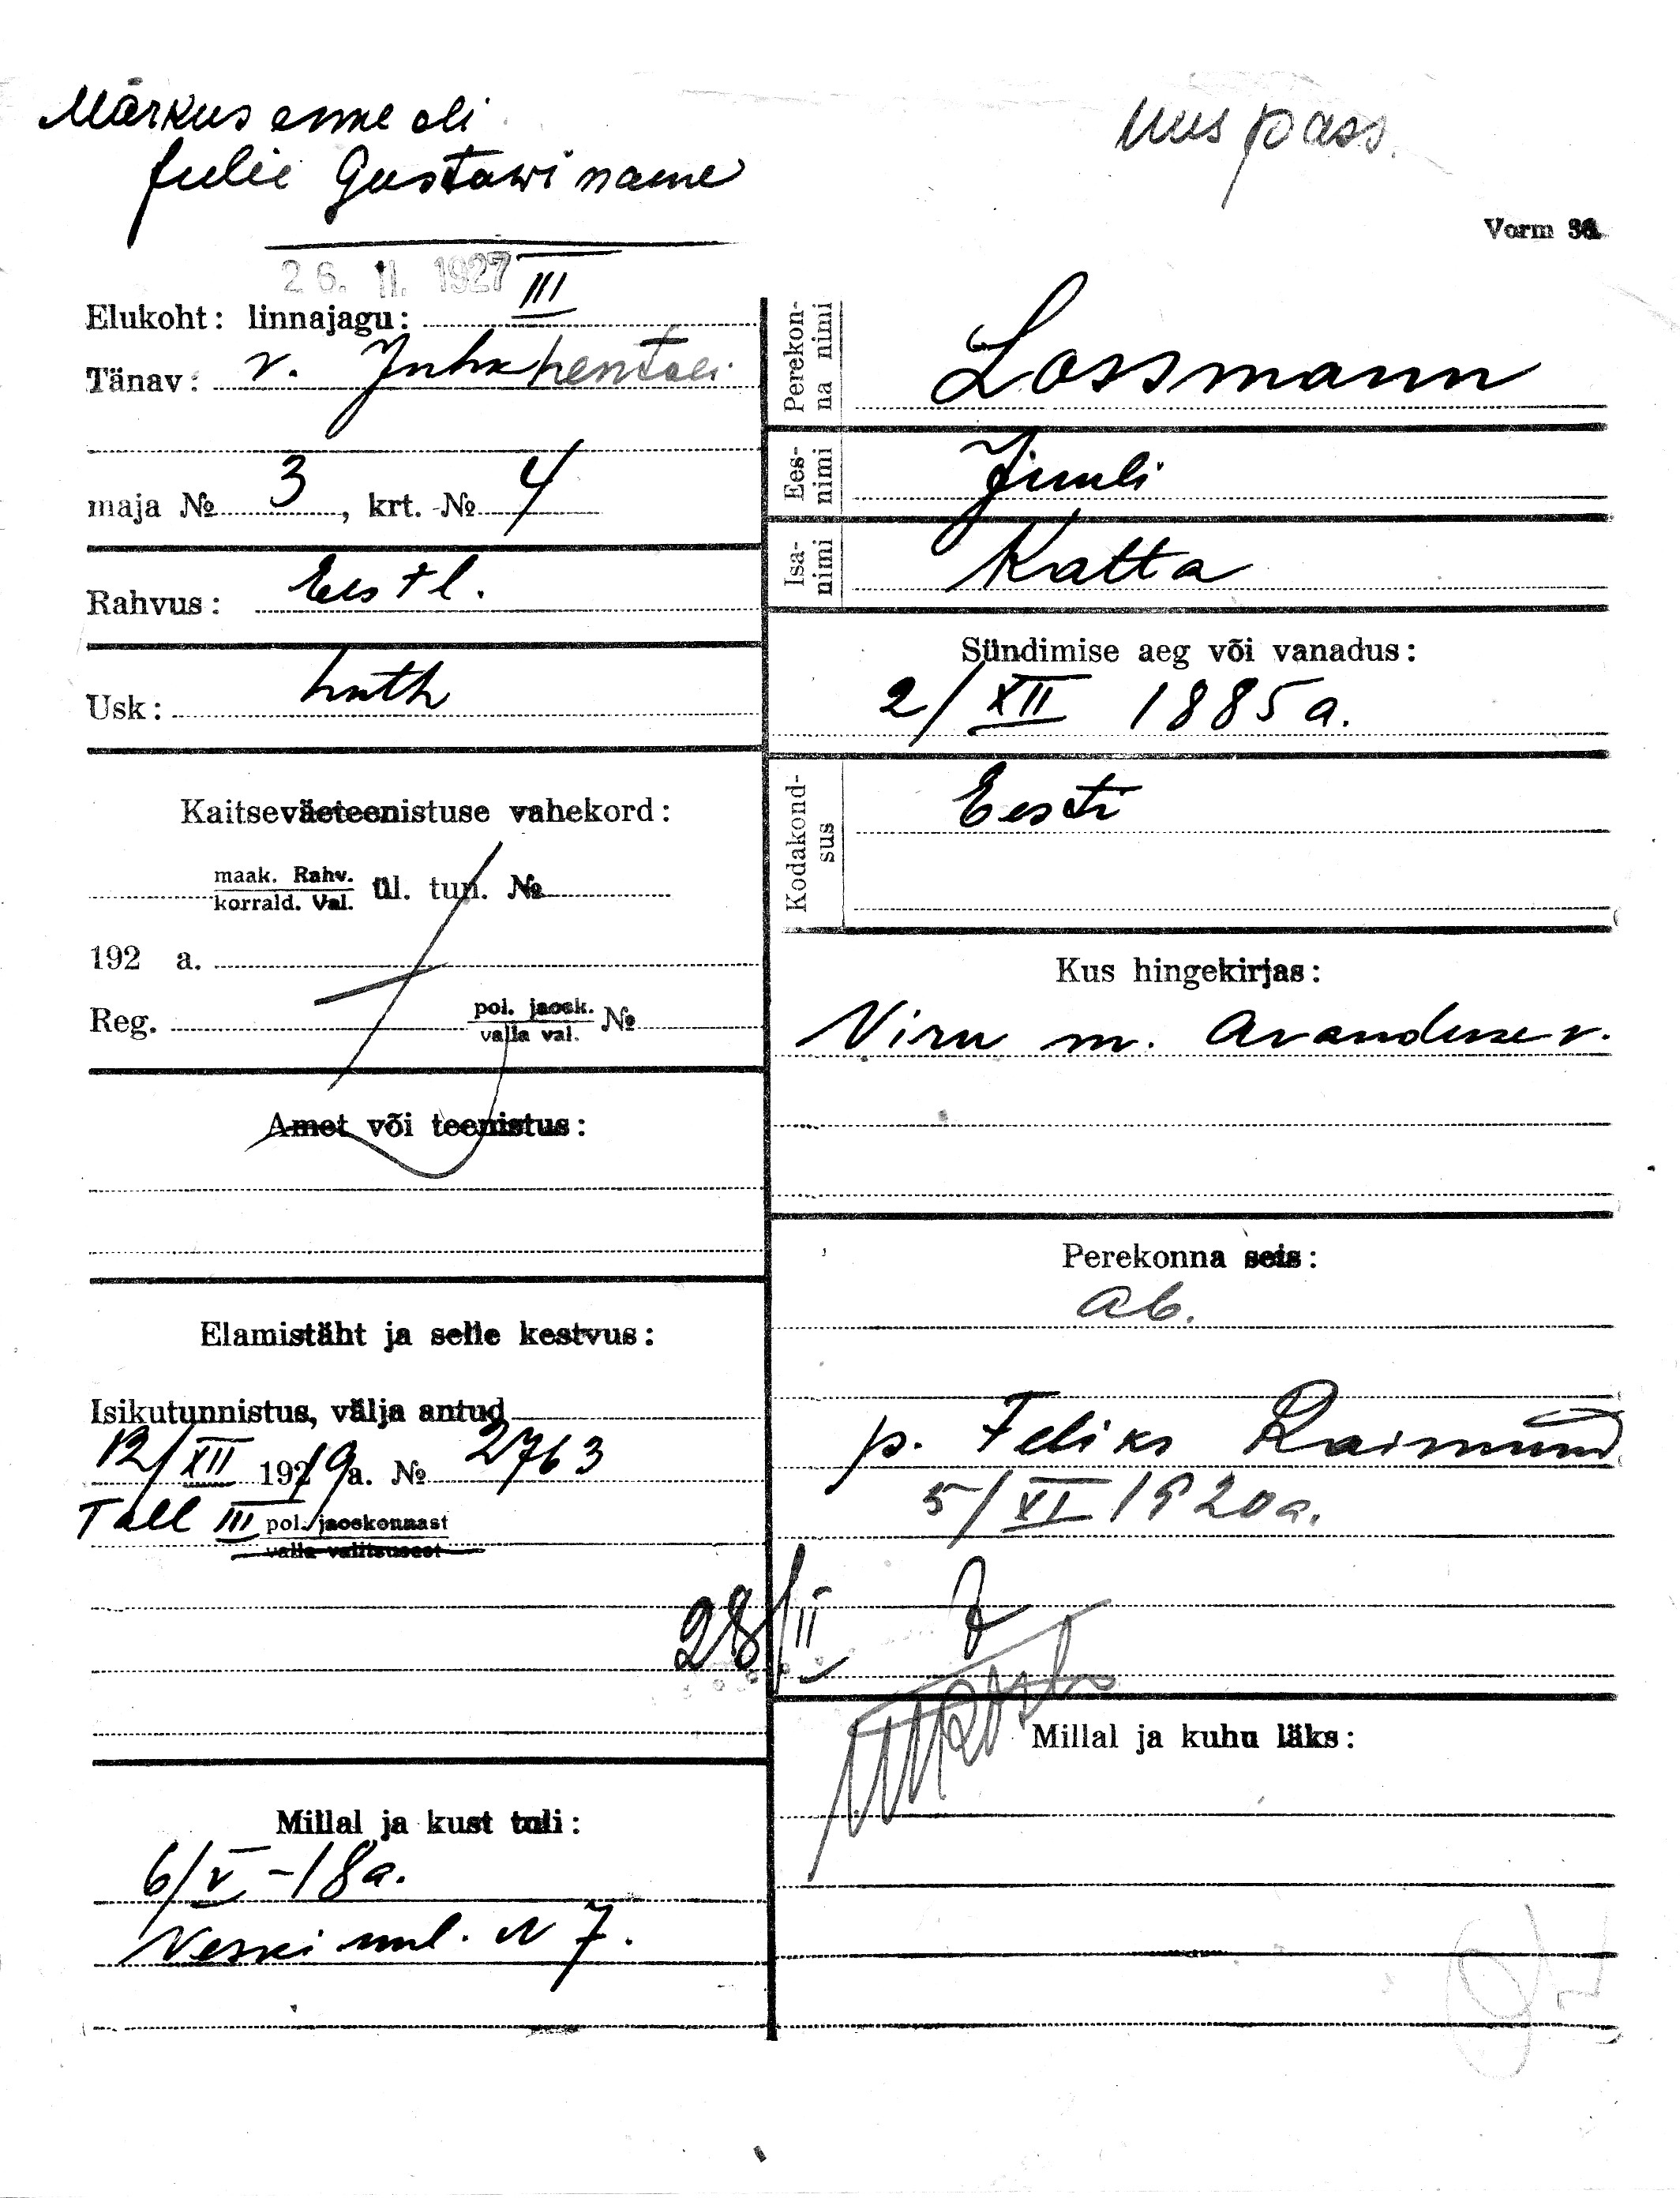 Märkus enne oli
Julie Gustawi naene
uus pass.
Vorm 36.
26. II. 1927
Elukoht: linnajagu: III
Tänav: v. Juhkentali
maja № 3, krt. № 4
Rahvus: Eestl.
Usk: luth
Kaitseväeteenistuse vahekord:
maak. Rahv.
korrald. Val. ül. tun. №
192 a.
Reg. pol. jaosk.
valla val. №
Amet või teenistus:
Elamistäht ja selle kestvus:
Isikutunnistus, välja antud
12/XII 1919 a. № 2763
Tall III pol. jaoskonnast
valla valitsusest
Millal ja kust tuli:
6/V -18a.
Veski uul. N 7.
Perekon-
na nimi
Lossmann
Ees-
nimi
Juuli
Isa-
nimi
Katta
Sündimise aeg või vanadus:
2/XII 1885 a.
Kodakond-
sus
Eesti
Kus hingekirjas:
Viru m. Avanduse v.
Perekonna seis:
ab.
p. Feliks Raimund
5/XI 1920a.
28/II
Millal ja kuhu läks: